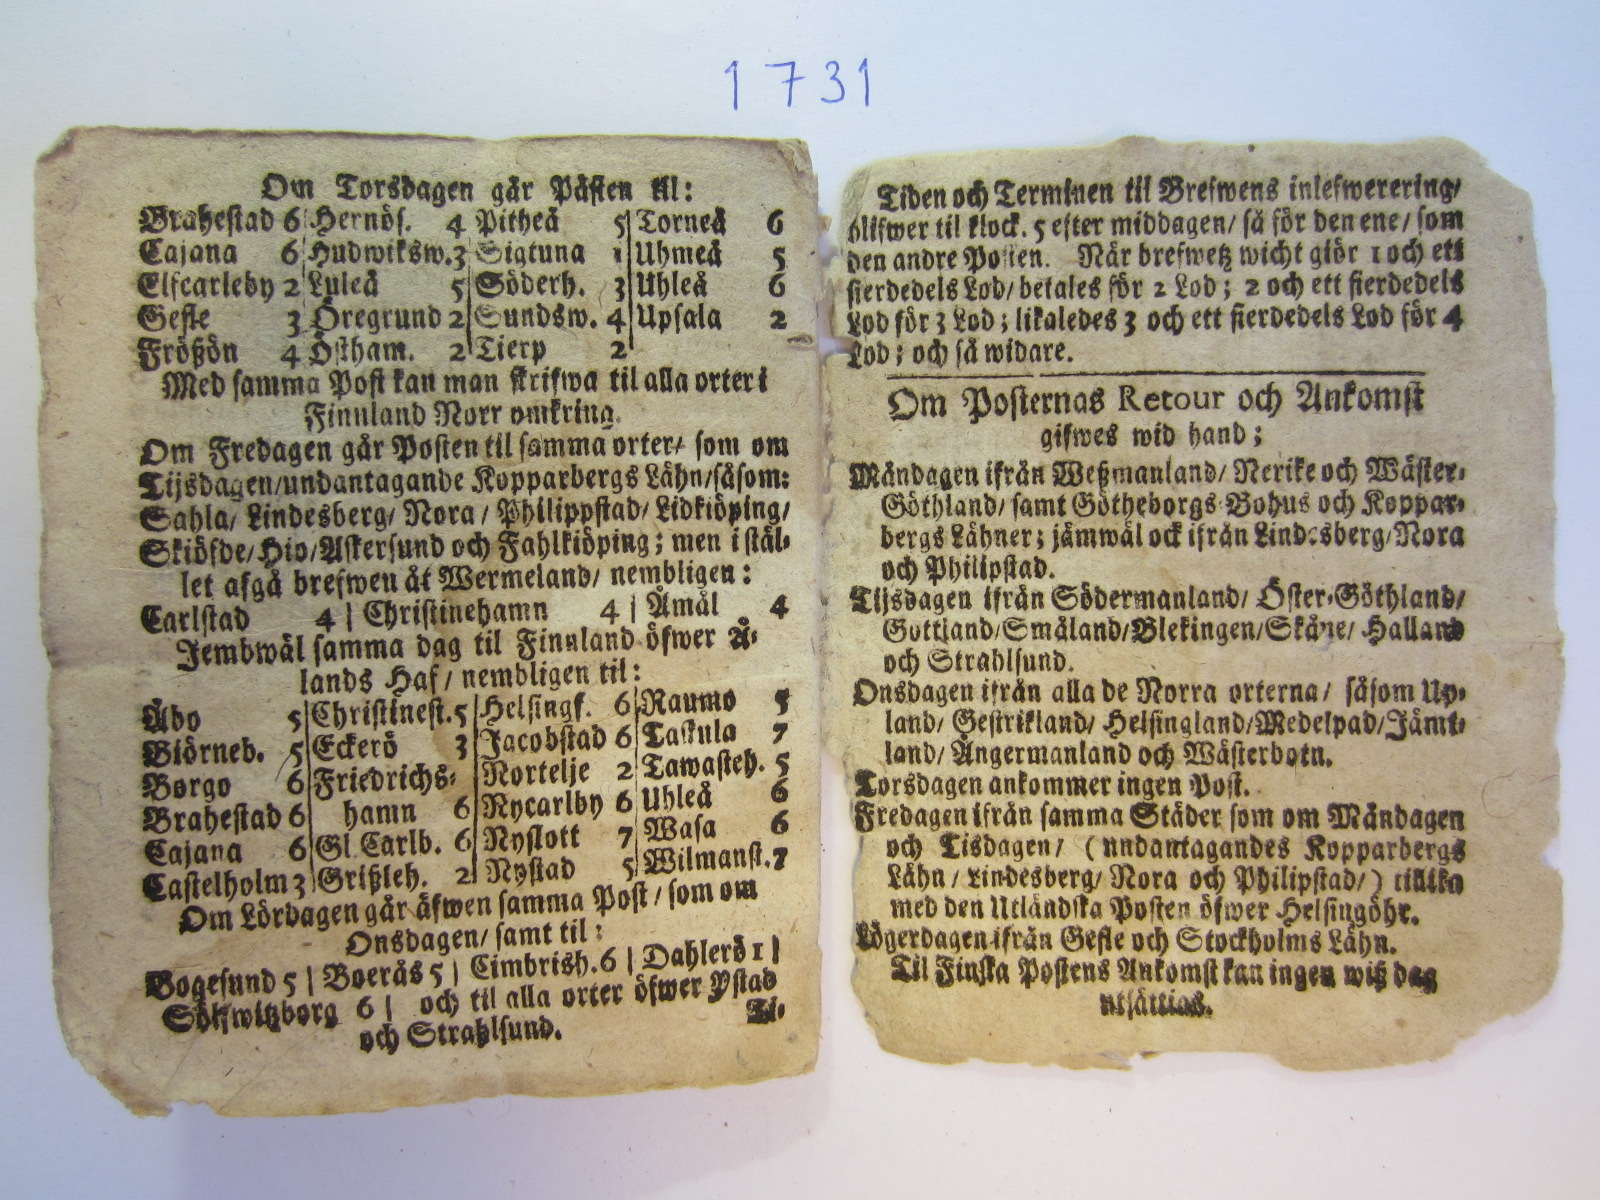 1731
Om Torsdagen går Påsten til:
Brahestad 6 Hernös. 4 Pitheå 5 Torneå 6
Cajana 6 Hudwiksw. 3 Sigtuna 1 Uhmeå 5
Elfcarleby 2 Luleå 5 Söderh. 3 Uhleå 6
Gefle 3 Öregrund 2 Sundsw. 4 Upsala 2
Frößön 4 Östham. 2 Tierp 2
Med samma Post kan man skrifwa til alla orter i
Finnland Norr omkring.
Om Fredagen går Posten til samma orter/ som om
Tijsdagen/undantagande Kopparbergs Lähn/såsom:
Sahla/ Lindesberg/ Nora/ Philippstad/ Lidkiöping/
Skiöfde/Hio/Askersund och Fahlkiöping; men i stäl-
let afgå brefwen åt Wermeland/ nembligen:
Carlstad 4 | Christinehamn 4 | Åmål 4
Jembwäl samma dag til Finnland öfwer Å-
lands Haf/ nembligen til:
Åbo 5 Christinest. 5 Helsingf. 6 Raumo 5
Biörneb. 5 Eckerö 3 Jacobstad 6 Taskula 7
Borgo 6 Friedrichs- Nortelje 2 Tawasteh. 5
Brahestad 6 hamn 6 Nycarlby 6 Uhleå 6
Cajana 6 Gl Carlb. 6 Nyslott 7 Wasa 6
Castelholm 3 Grißleh. 2 Nystad 5 Wilmanst. 7
Om Lördagen går äfwen samma Post/ som om
Onsdagen/ samt til:
Bogesund 5 | Boerås 5 | Cimbrish. 6 | Dahlerö 1 |
Sölfwitzborg 6 | och til alla orter öfwer Ystad
och Strahlsund. Ti-
Tiden och Terminen til Brefwens inlefwerering/
blifwer til klock. 5 efter middagen/ så för den ene/ som
den andre Posten. När brefwetz wicht giör 1 och ett
fierdedels Lod/ betales för 2 Lod; 2 och ett fierdedels
Lod för 3 Lod; likaledes 3 och ett fierdedels Lod för 4
Lod; och så widare.
Om Posternas Retour och Ankomst
gifwes wid hand;
Måndagen ifrån Weßmanland/ Nerike och Wäster-
Göthland/ samt Götheborgs Bohus och Koppar-
bergs Lähner; jämwäl ock ifrån Lindesberg/Nora
och Philipstad.
Tijsdagen ifrån Södermanland/ Öster-Göthland/
Gottland/Småland/Blekingen/Skåne/ Halland
och Strahlsund.
Onsdagen ifrån alla de Norra orterna/ såsom Up-
land/ Gestrikland/ Helsingland/Medelpad/Jämt-
land/ Ångermanland och Wästerbotn.
Torsdagen ankommer ingen Post.
Fredagen ifrån samma Städer som om Måndagen
och Tisdagen/ (undantagandes Kopparbergs
Lähn/Lindesberg/ Nora och Philipstad/) tillika
med den Utländska Posten öfwer Helsingöhr.
Lögerdagen ifrån Gefle och Stockholms Lähn.
Til Finska Postens Ankomst kan ingen wiß dag
utsättias.